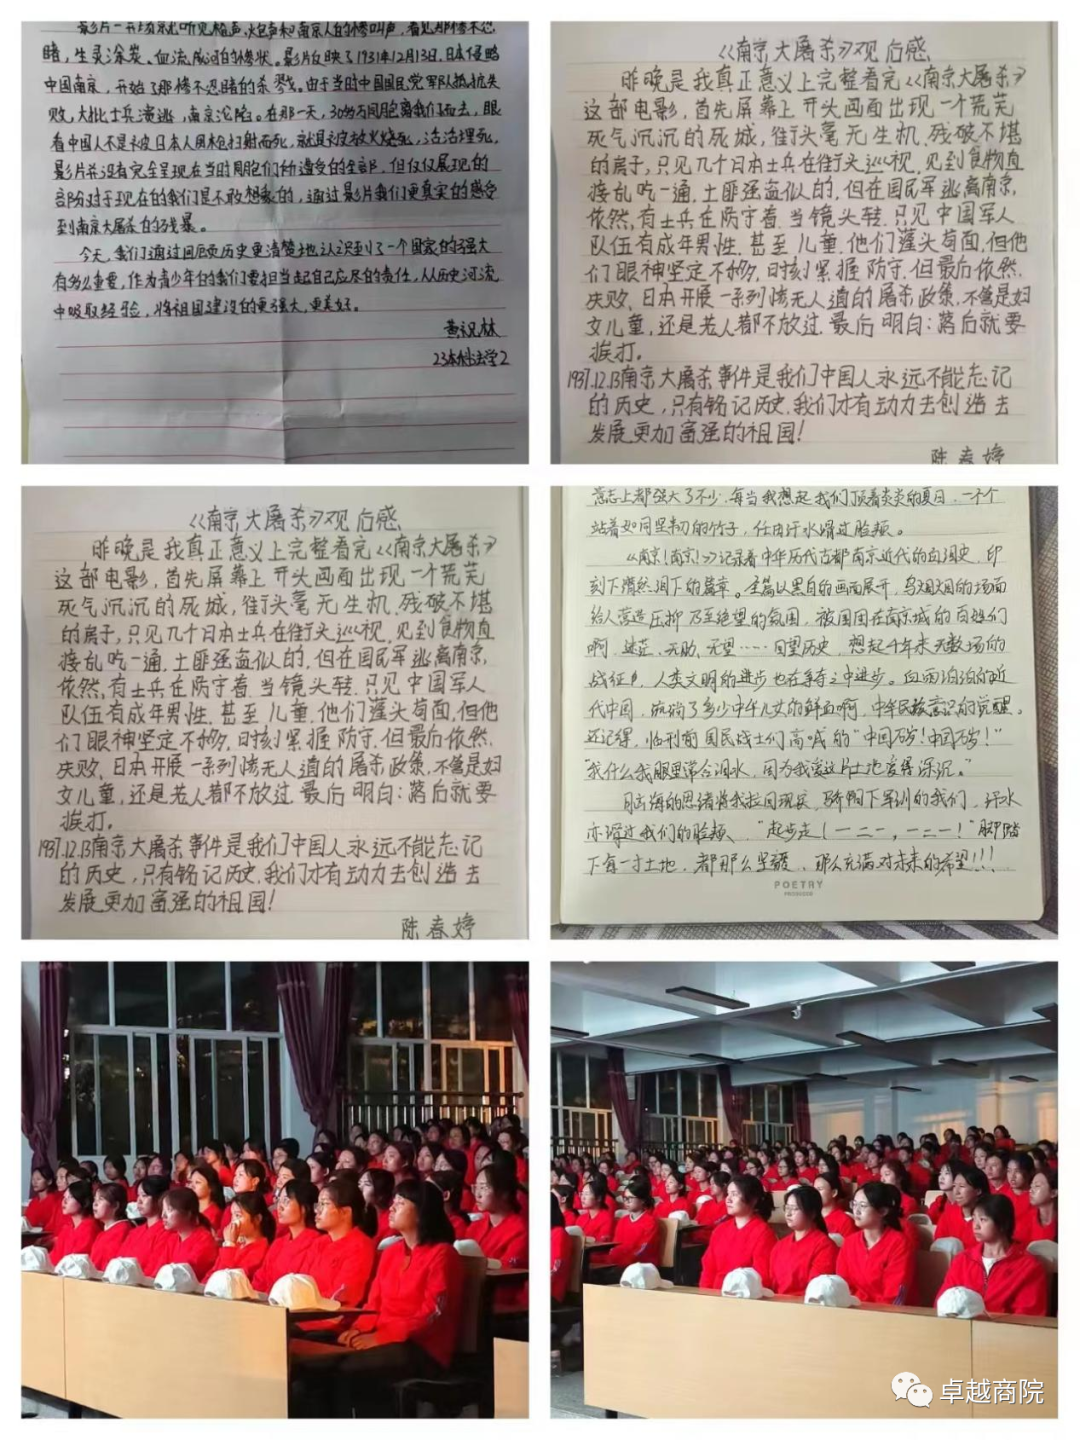 影片一开场就听见枪声,炮声和南京人的惨叫声,看见那惨不忍
睹,生灵涂炭、血流成河的惨状。影片反映了1931年12月13日,日本侵略
中国南京,开始了那惨不忍睹的杀戮。由于当时中国国民党军队抵抗失
败,大批士兵溃逃,南京沦陷。在那一天,30多万同胞离我们而去,眼
看中国人不是被日本人用枪扫射而死,就是被放火烧死,活活埋死,
影片并没有完全呈现在当时同胞们所遭受的全部,但仅仅展现的
部份对于现在的我们是不敢想象的,通过影片我们更真实的感受
到南京大屠杀的残暴。
今天,我们通过回顾历史更清楚地认识到了一个国家的强大
有多么重要,作为青少年的我们要担当起自己应尽的责任,从历史河流
中吸取经验,将祖国建设的更强大,更美好。
黄祝林
23本科法学2
《南京大屠杀》观后感
昨晚是我真正意义上完整看完《南京大屠杀》
这部电影,首先屏幕上开头画面出现一个荒芜
死气沉沉的死城,街头毫无生机,残破不堪
的房子,只见几十日本士兵在街头巡视,见到食物直
接乱吃一通,土匪强盗似的,但在国民军逃离南京,
依然,有士兵在防守着,当镜头转,只见中国军人
队伍有成年男性,甚至儿童,他们蓬头苟面,但他
们眼神坚定不移,时刻紧握防守,但最后依然,
失败、日本开展一系列惨无人道的屠杀政策,不管是妇
女儿童,还是老人都不放过,最后明白:落后就要
挨打。
1937.12.13南京大屠杀事件是我们中国人永远不能忘记
的历史,只有铭记历史,我们才有动力去创造去
发展更加富强的祖国!
陈春婷
《南京大屠杀》观后感
昨晚是我真正意义上完整看完《南京大屠杀》
这部电影,首先屏幕上开头画面出现一个荒芜
死气沉沉的死城,街头毫无生机,残破不堪
的房子,只见几十日本士兵在街头巡视,见到食物直
接乱吃一通,土匪强盗似的,但在国民军逃离南京,
依然,有士兵在防守着,当镜头转,只见中国军人
队伍有成年男性,甚至儿童,他们蓬头苟面,但他
们眼神坚定不移,时刻紧握防守,但最后依然,
失败、日本开展一系列惨无人道的屠杀政策,不管是妇
女儿童,还是老人都不放过,最后明白:落后就要
挨打。
1937.12.13南京大屠杀事件是我们中国人永远不能忘记
的历史,只有铭记历史,我们才有动力去创造去
发展更加富强的祖国!
陈春婷
意志上都强大了不少,每当我想起我们顶着炎炎的夏日,一个个
站着如同坚韧的竹子,任由汗水滑过脸颊。
《南京!南京!》记录着中华历代古都南京近代的血泪史,印
刻下潸然泪下的篇章。全篇以黑白的画面展开,乌烟的场面
给人营造压抑乃至绝望的氛围,被围困在南京城的百姓们
啊,迷茫、无助、无望……回望历史,想起千年来无数场的
战征,人类文明的进步也在争夺之中进步。血雨的近
代中国,流淌了多少中华儿女的鲜血啊,中华民族意识的觉醒。
还记得,临刑前国民战士们高喊的“中国万岁!中国万岁!”
“我什么我眼里常含泪水,因为我爱这片土地爱得深沉。”
脑海的思绪将我拉回现实,骄阳下军训的我们,汗水
亦滑过我们的脸颊、“起步走!一二一,一二一!”脚踏
下每一寸土地,都那么坚毅、那么充满对未来的希望!!!
POETRY
卓越商院